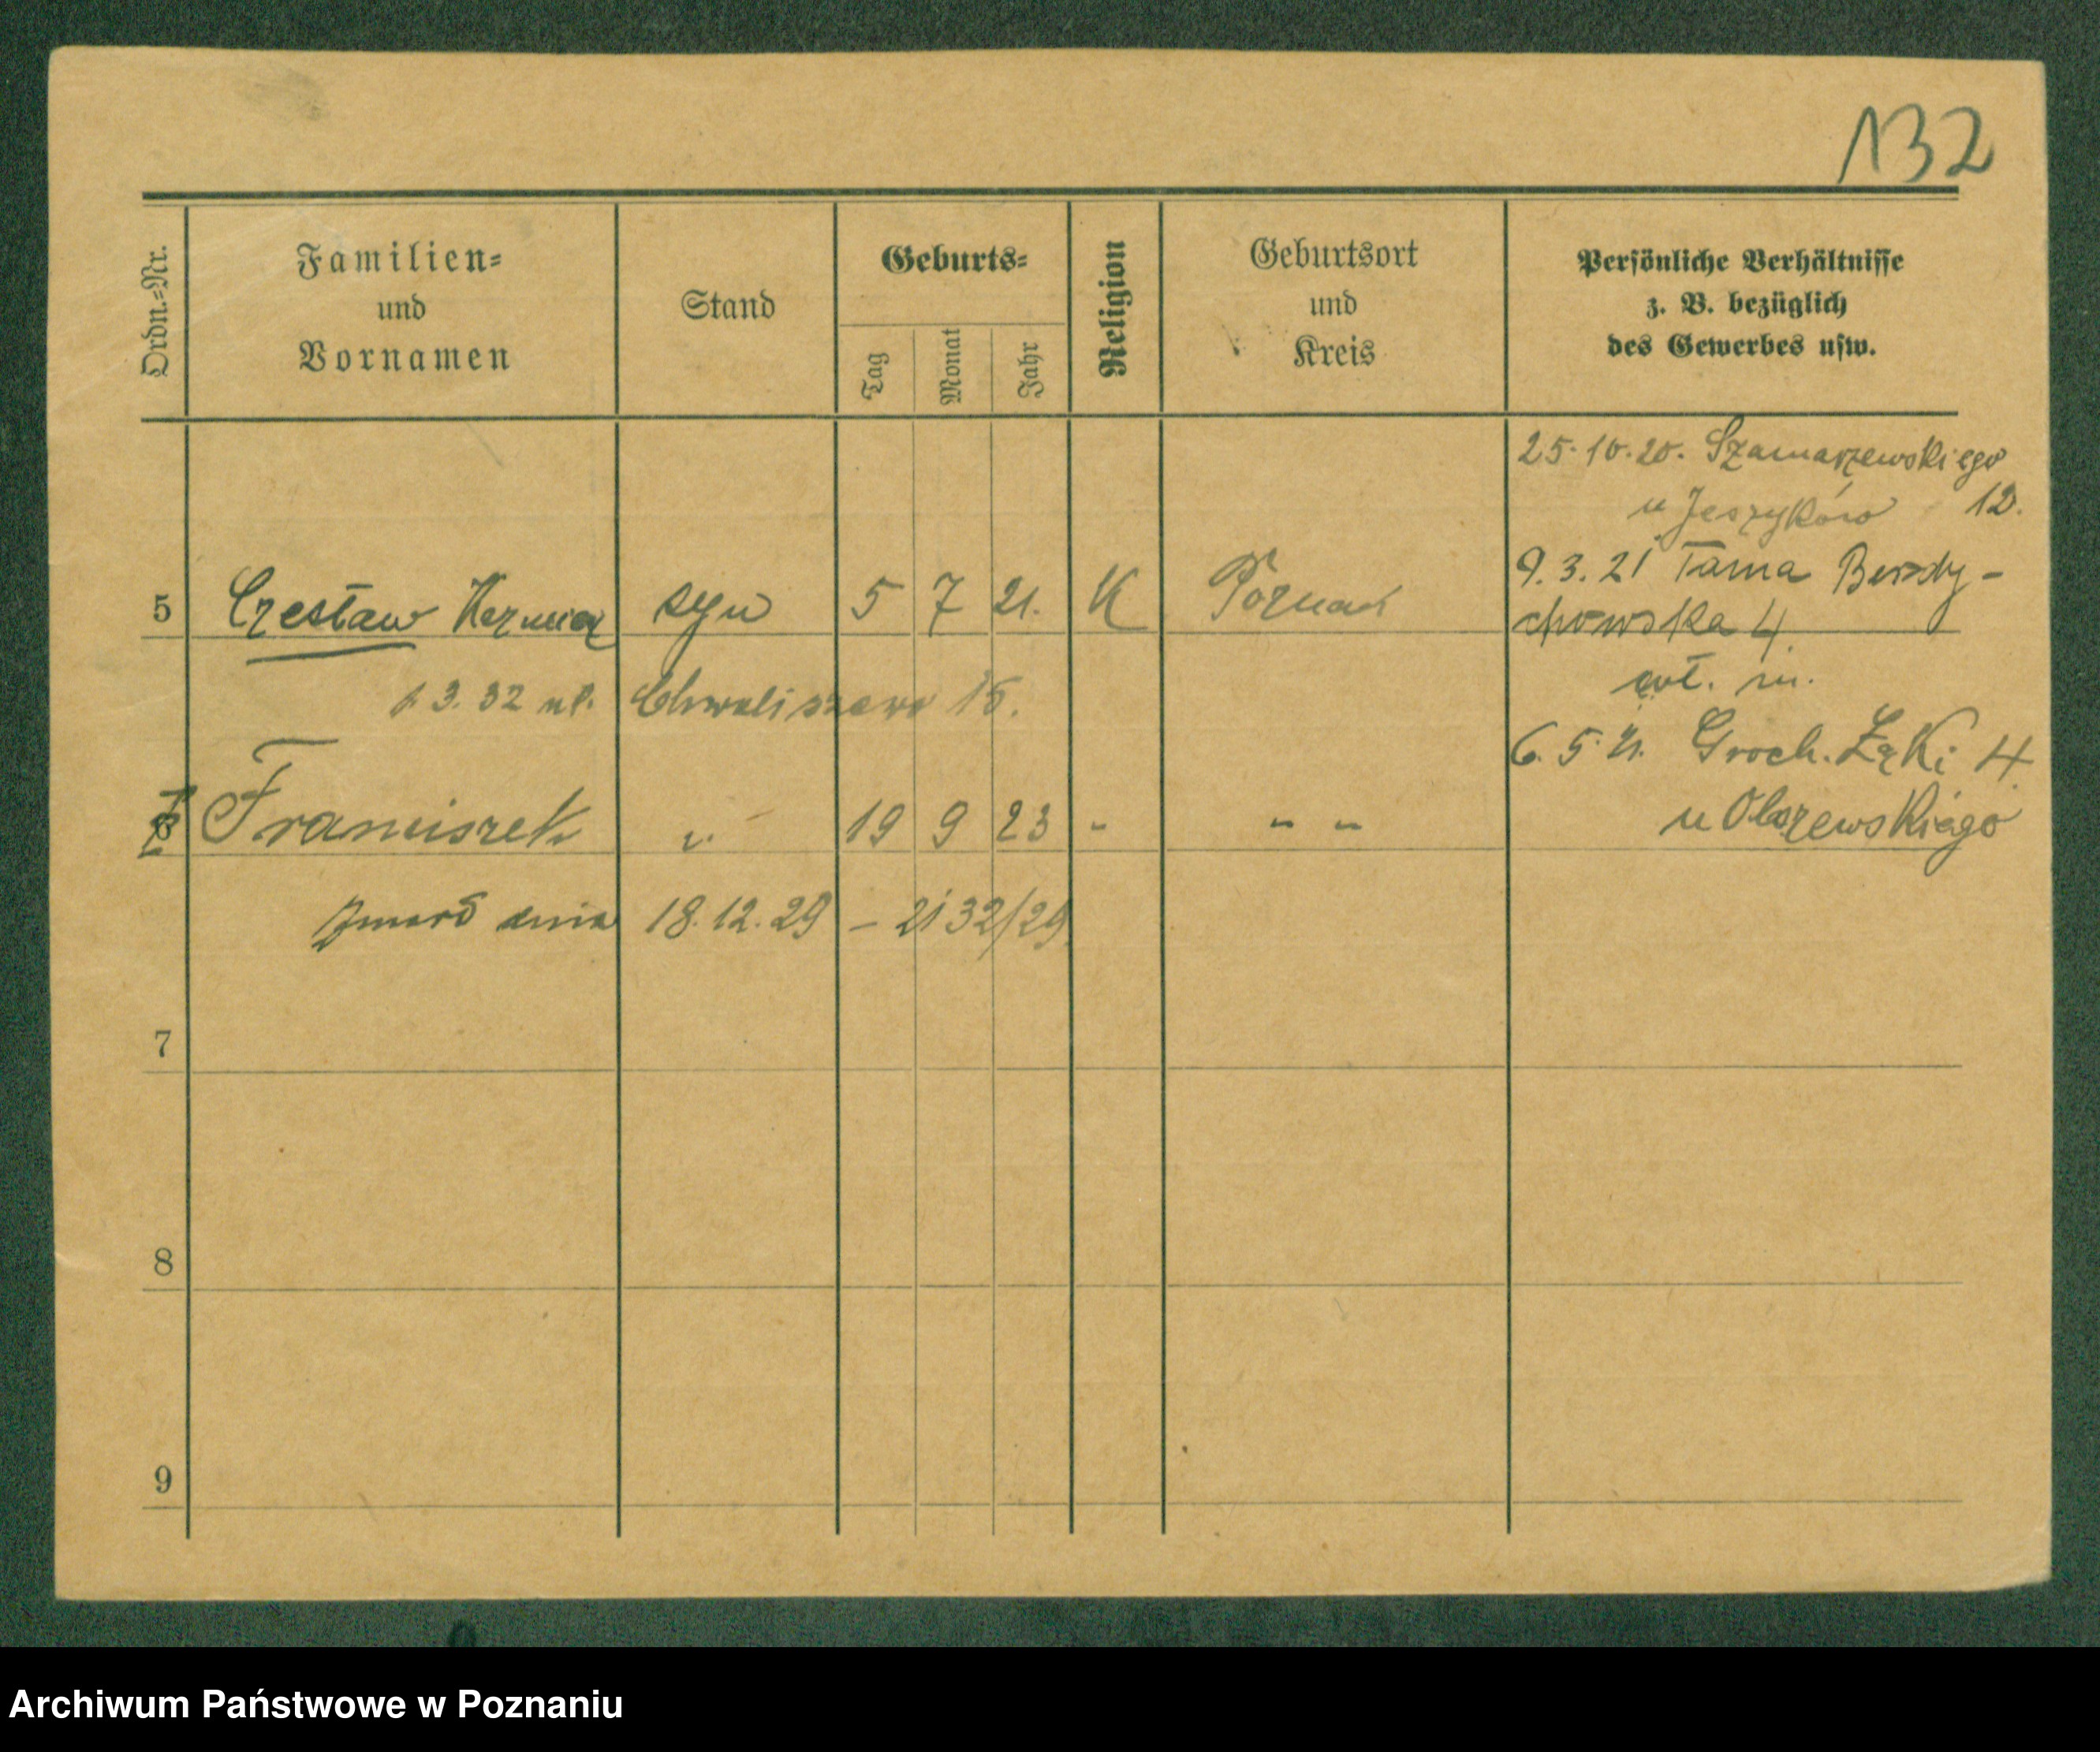 132
Ordn.=Nr.
Familien=
und
Vornamen
Stand
Geburts=
Tag
Monat
Jahr
Religion
Geburtsort
und
Kreis
Persönliche Verhältnisse
z. B. bezüglich
des Gewerbes usw.
25.10.20. Szamarzewskiego
u Jeszyków 12.
9.3.21 Tama Berdy-
chowska 4.
wł. m.
6.5.21. Groch. Łąki 4
u Olszewskiego
5 Czesław Kazmierz syn 5 7 21. K Poznań
1.3.32 ul. Chwaliszewo 15.
6 Franciszek " 19 9 23 " " "
Zmarł dnia 18.12.29 – 2132/29.
7
8
9
Archiwum Państwowe w Poznaniu